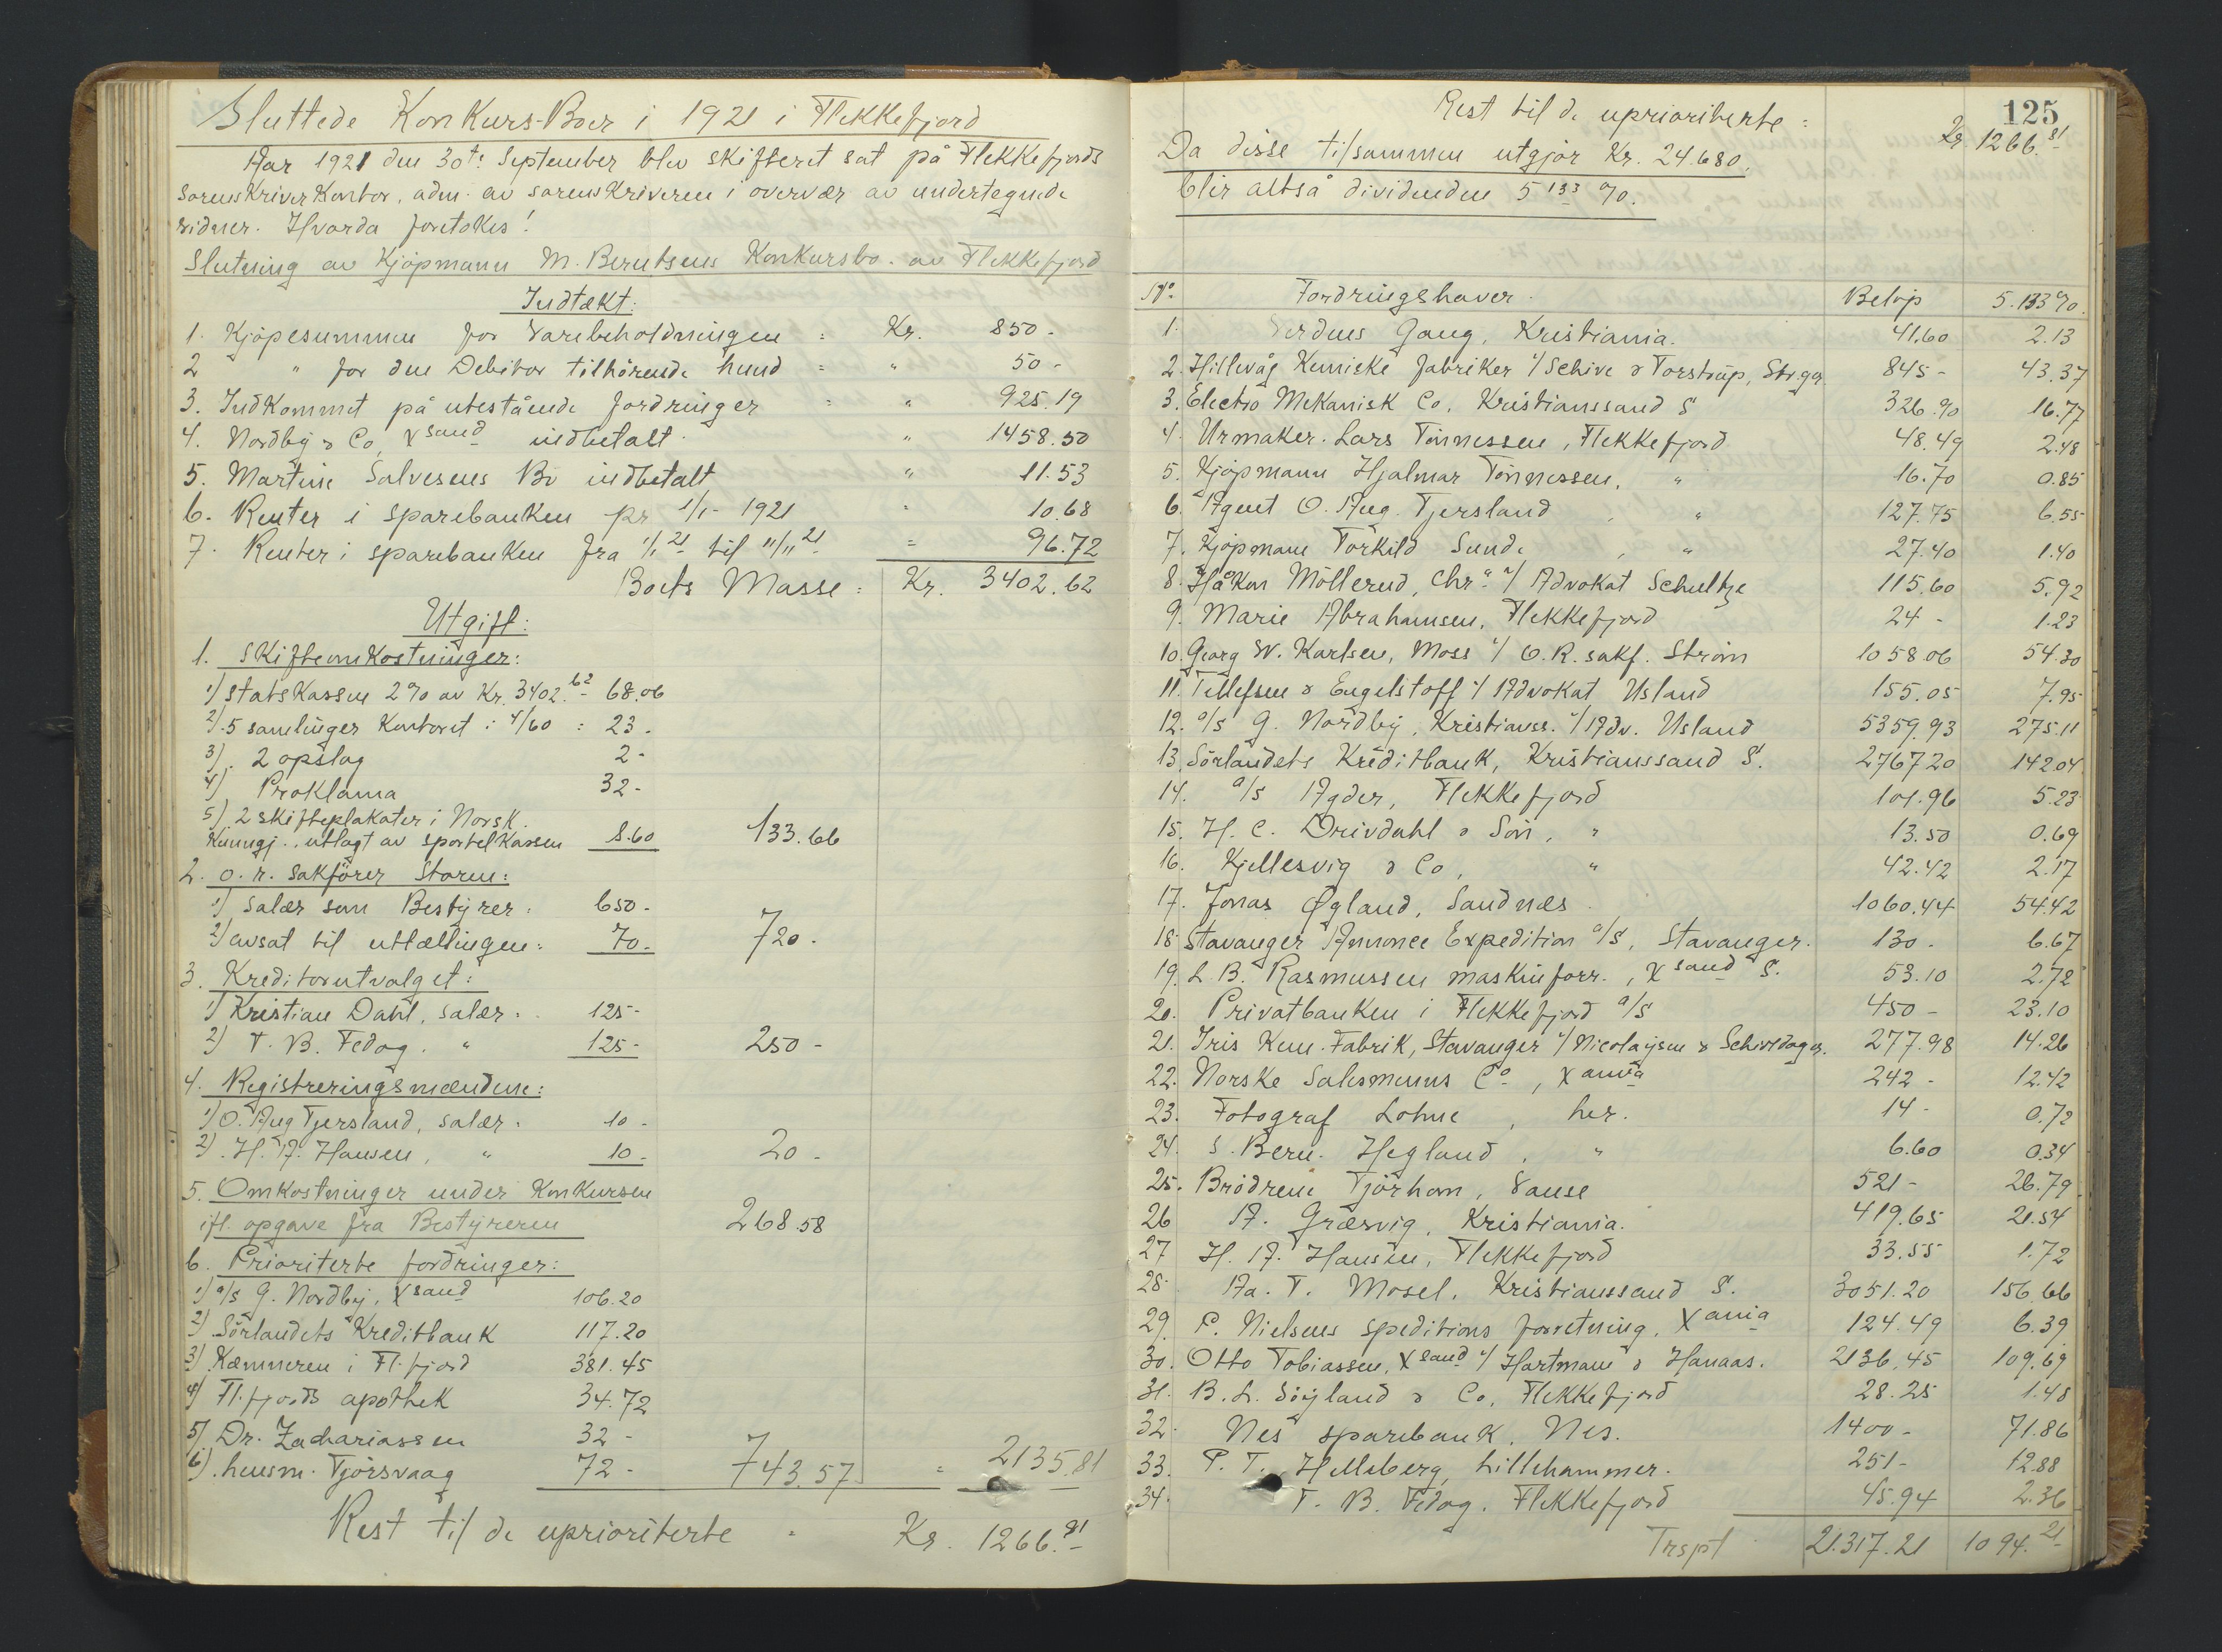 Sluttede Konkurs-Boer i 1921 i Flekkefjord
Aar 1921 den 30te September blev skifteret sat på Flekkefjords
sorenskriverkontor, adm. av sorenskriveren i overvær av undertegnede
vidner. Hvorda foretokes!
Slutning av Kjöpmann M. Berntsens Konkursbo. av Flekkefjord
Indtækt:
1. Kjöpesummen for Varebeholdningen = Kr. 850 -
2 " for den Debitor tilhörende hund = " 50 -
3. Indkommet på utestående fordringer = " 925.19
4. Nordby & Co, Xsand indbetalt " 1458.50
5. Martine Salvesens Bo indbetalt " 11.53
6. Renter i sparebanken pr 1/1 - 1921 " 10.68
7. Renter i sparebanken fra 1/1 21 til 11/11 21 = 96.72
Boets Masse: Kr. 3402.62
Utgift:
1. Skifteomkostninger:
1) Statskassen 2% av Kr. 3402.62 - 68.06
2) 5 samlinger Kontoret: 4/60 : 23 -
3). 2 opslag 2 -
4) Proklama 32 -
5) 2 skifteplakater i Norsk.
Kunngj. utlagt av sportelkassen 8.60 133.66
2. o. r. sakförer Storm:
1) Salær som Bestyrer: 650 -
2) avsat til utlællingen: 70 - 720 -
3. Kreditorutvalget:
1) Kristian Dahl, salær: 125 -
2) T. B. Fedog. " 125 - 250 -
4. Registreringsmændene:
1) O. Aug Tjersland, salær: 10 -
2). H. A. Hansen, " 10 - 20 -
5. Omkostninger under Konkursen
ifl. opgave fra Bestyreren 268.58
6. Prioriterte fordringer:
1) a/s G. Nordby, Xsand 106.20
2) Sörlandets Kreditbank 117.20
3) Kæmneren i Fl.fjord 381.45
4) Fl.fjords apothek 34.72
5) Dr. Zachariassen 32 -
6). husm. Tjörsvaag 72 - 743.57 = 2135.81
Rest til de uprioriterte = Kr. 1266.81
125
Rest til de uprioriterte: Kr 1266.81
Da disse tilsammen utgjör Kr. 24.680.
blir altså dividenden 5 133 %.
No. Fordringshaver. Belöp 5.133%.
1. Gang, Kristiania. 41.60 2.13
2. Hillevåg Kemiske fabriker v/ Schive & Torstrup, Stvgr. 845 - 43.37
3. Electro Mekanisk Co. Kristianssand S 326.90 16.77
4. Urmaker. Lars Tönnessen, Flekkefjord 48.49 2.48
5. Kjöpmann Hjalmar Tönnessen, " 16.70 0.85
6. Agent O. Aug. Tjersland, " 127.75 6.55
7. Kjöpmann Törkild Sunde, " 27.40 1.40
8. Håkon Möllerud, Chra v/ Advokat Schultze 115.60 5.92
9. Marie Abrahamsen, Flekkefjord 24 - 1.23
10. Georg W. Karlsen, Moss v/ O.R. sakf. Ström 1058.06 54.30
11. Tellefsen & Engelstoff v/ Advokat Usland 155.05 7.95
12. a/s G. Nordby, Kristianss. v/ Adv. Usland 5359.93 275.11
13. Sörlandets Kreditbank, Kristianssand S. 2767.20 142.04
14. a/s Agder, Flekkefjord 101.96 5.23
15. H. C. Drivdahl & Sön, " 13.50 0.69
16. Kjellesvig & Co, " 42.42 2.17
17. Jonas Øgland, Sandnæs. 1060.44 54.42
18. Stavanger Annonce Expedition a/s, Stavanger. 130 - 6.67
19. L. B. Rasmussen maskinforr., Xsand S. 53.10 2.72
20. Privatbanken i Flekkefjord a/s 450 - 23.10
21. Iris Kem. Fabrik, Stavanger v/ Nicolaysen & Schiværdager. 277.98 14.26
22. Norske Salesmenns Co, Xania 242 - 12.42
23. Fotograf Lohne, her. 14 - 0.72
24. S. Bern. Hegland, " 6.60 0.34
25. Brödrene Tjörhom, Vanse 521 - 26.79
26 A. Græsvig, Kristiania. 419.65 21.54
27 H. A. Hansen, Flekkefjord 33.55 1.72
28 Aa. T. Mosel, Kristianssand S. 3051.20 156.66
29. P. Nielsens speditions forretning, Xania 124.49 6.39
30. Otto Tobiassen, Xsand v/ Hartmann & Hanaas. 2136.45 109.69
31. B. L. Söyland & Co, Flekkefjord 28.25 1.48
32. Nes sparebank, Nes. 1400 - 71.86
33. P. T. Hellsberg, Lillehammer. 251 - 12.88
34. T. B. Fedog. Flekkefjord 45.94 2.36
Trspt 21.317.21 1094.21